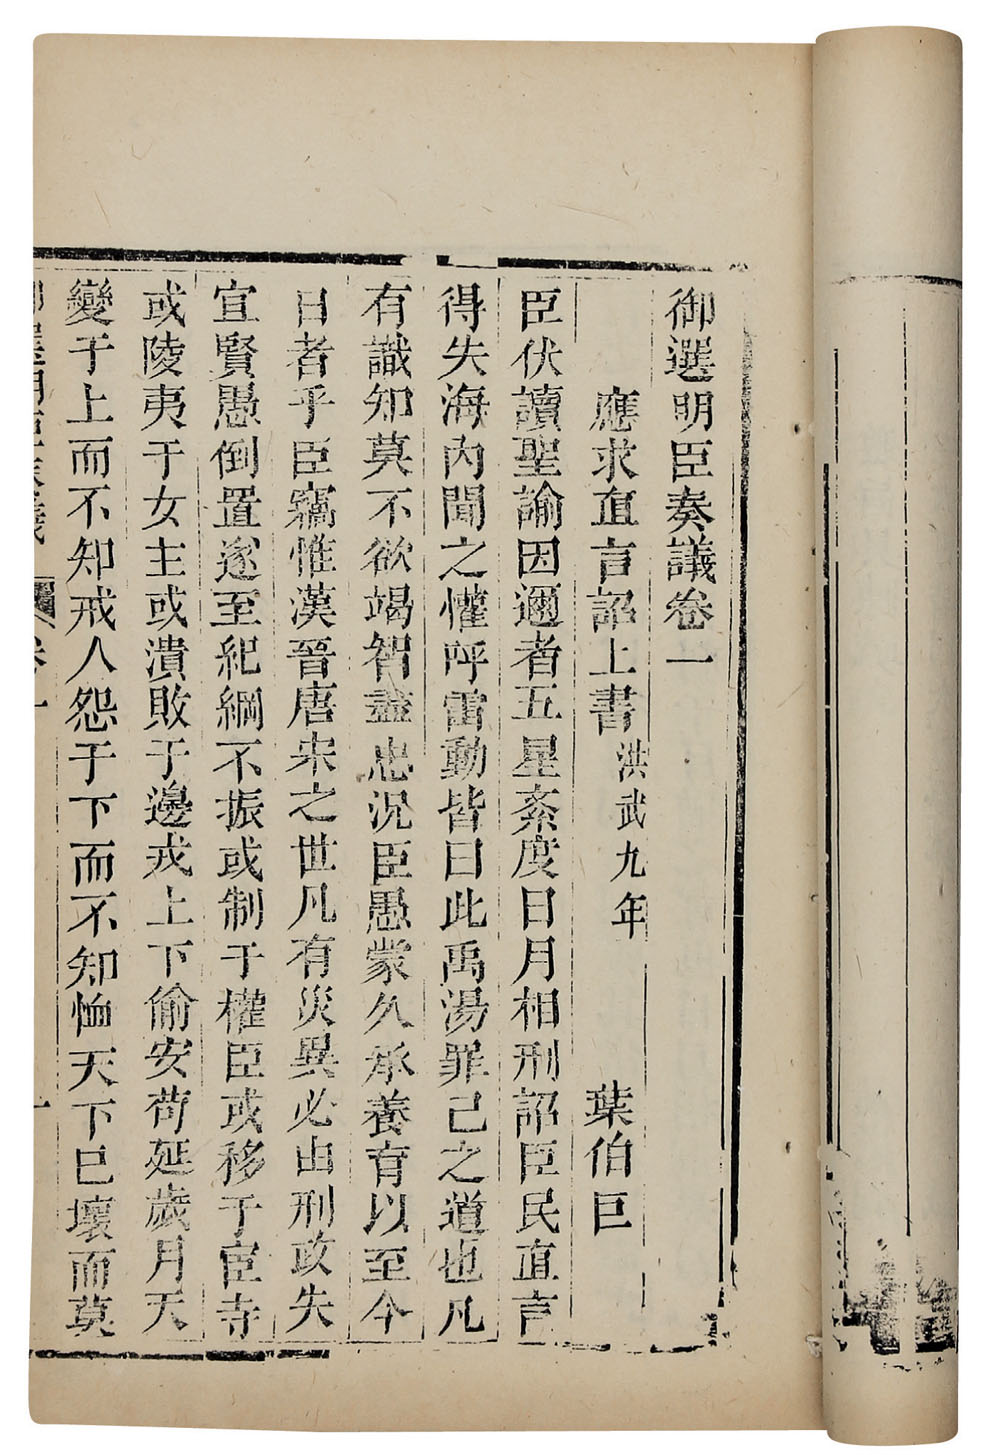 御選明臣奏議卷一
應求直言詔上書洪武九年 葉伯巨
臣伏讀聖諭因邇者五星紊度日月相刑詔臣民直言
得失海內聞之懽呼雷動皆曰此禹湯罪己之道也凡
有識知莫不欲竭智盡忠況臣愚蒙久承養育以至今
日者乎臣竊惟漢晉唐宋之世凡有災異必由刑政失
宜賢愚倒置遂至紀綱不振或制于權臣或移于宦寺
或陵夷于女主或潰敗于邊戎上下偷安苟延歲月天
變于上而不知戒人怨于下而不知恤天下已壞而莫